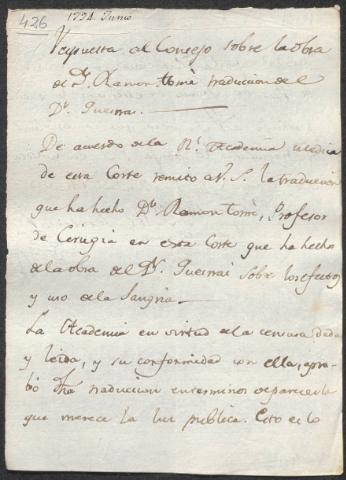 426
1794 Junio
Respuesta al Consejo sobre la obra
de Dn. Ramon tomè traduccion del
Dr. Guesnai.
De acuerdo de la Rl. Academia medica
de esta Corte remito a V. S. la traduccion
que ha hecho Dn. Ramon tomè, Profesor
de Cirugia en esta Corte que ha hecho
de la obra del Dr. Guesnai sobre los efectos
y uso de la Sangria.
La Academia en virtud de la censura dada
y leida, y su conformidad con ella, apro-
bó dha traduccion en terminos de parecerla
que merece la luz publica. Esto es lo